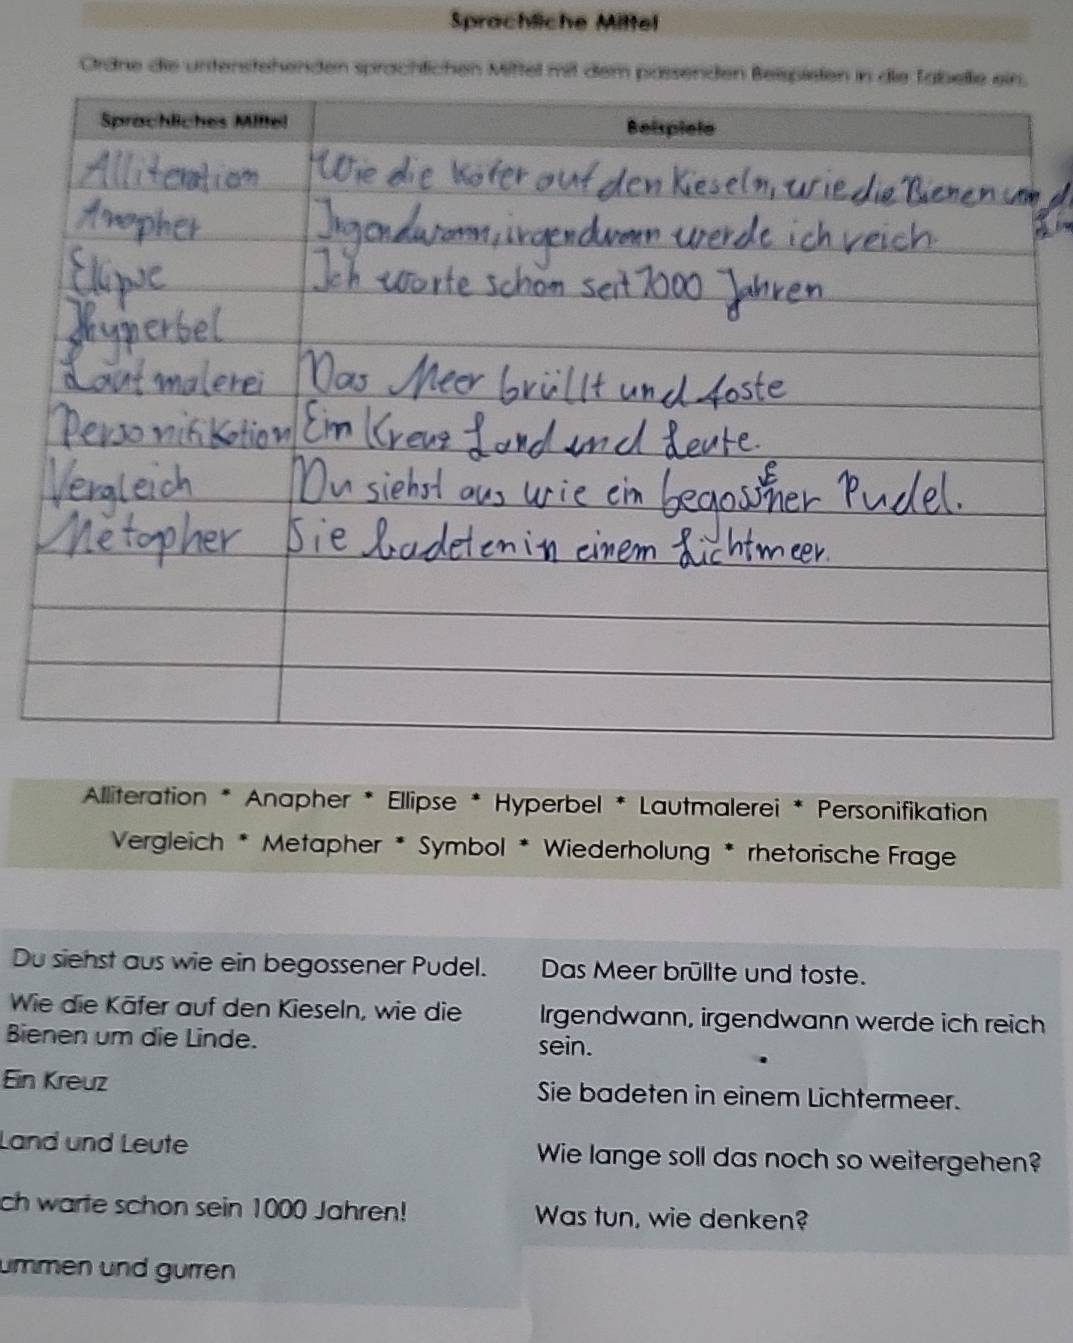 Sprachliche Mittel
Ordne die untenstehenden sprachlichen Mittel mit dem passenden Beispielen in die Tabelle ein.
Sprachliches Mittel Beispiele
Alliteration Wie die Kofer auf den Kieseln, wie die Bienen um d
Anapher Irgendwann, irgendwann werde ich reich
Ellipse Ich warte schon seit 1000 Jahren
Hyperbel
Lautmalerei Das Meer brüllt und toste
Personifikation Ein Kreuz Land und Leute.
Vergleich Du siehst aus wie ein begossener Pudel.
Metapher Sie badeten in einem Lichtmeer.
Alliteration * Anapher * Ellipse * Hyperbel * Lautmalerei * Personifikation
Vergleich * Metapher * Symbol * Wiederholung * rhetorische Frage
Du siehst aus wie ein begossener Pudel.
Wie die Käfer auf den Kieseln, wie die
Bienen um die Linde.
Ein Kreuz
Land und Leute
ch warte schon sein 1000 Jahren!
ummen und gurren
Das Meer brüllte und toste.
Irgendwann, irgendwann werde ich reich
sein.
Sie badeten in einem Lichtermeer.
Wie lange soll das noch so weitergehen?
Was tun, wie denken?